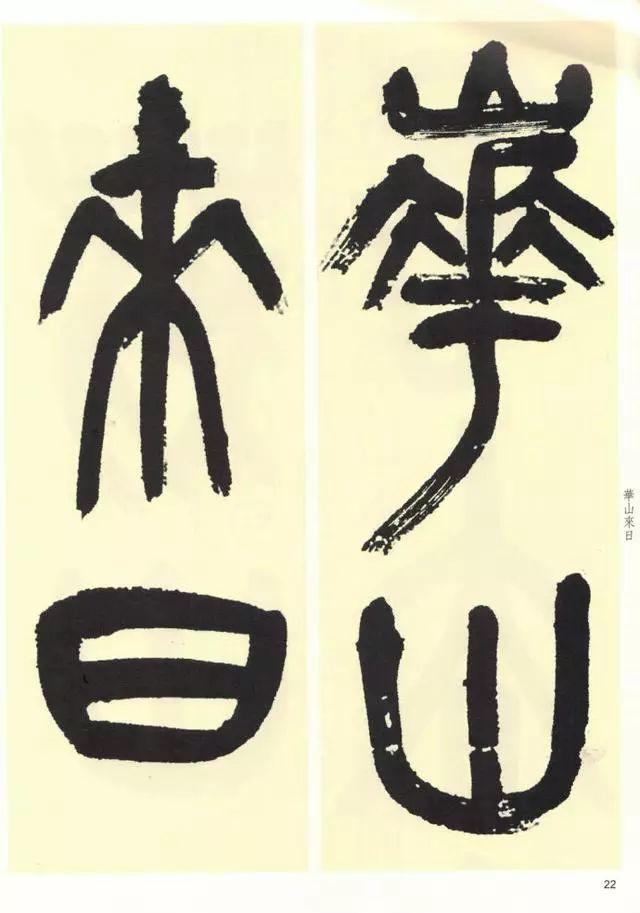 華山
來日
華山來日
22